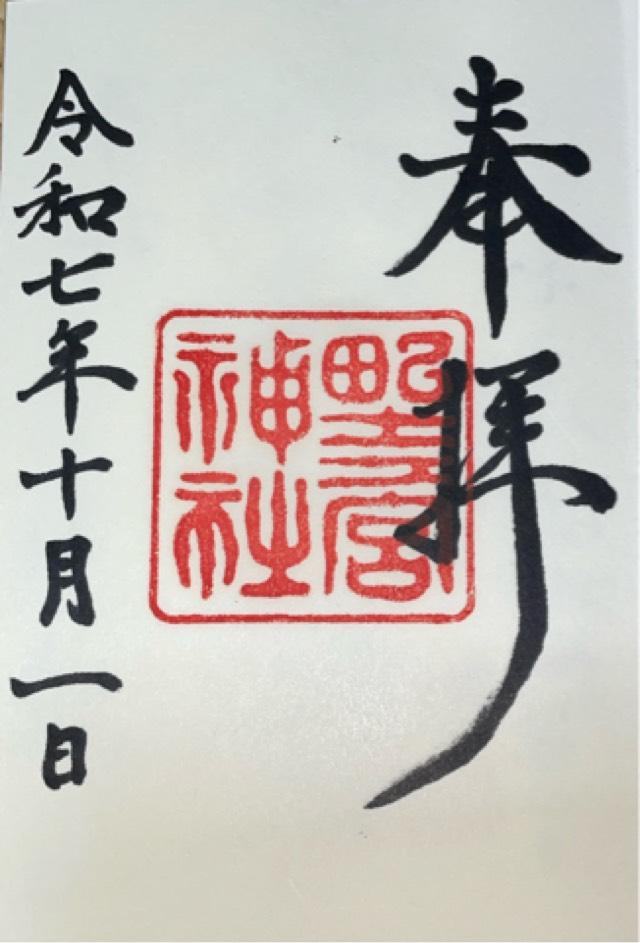 奉拝
野宮神社
令和七年十月一日